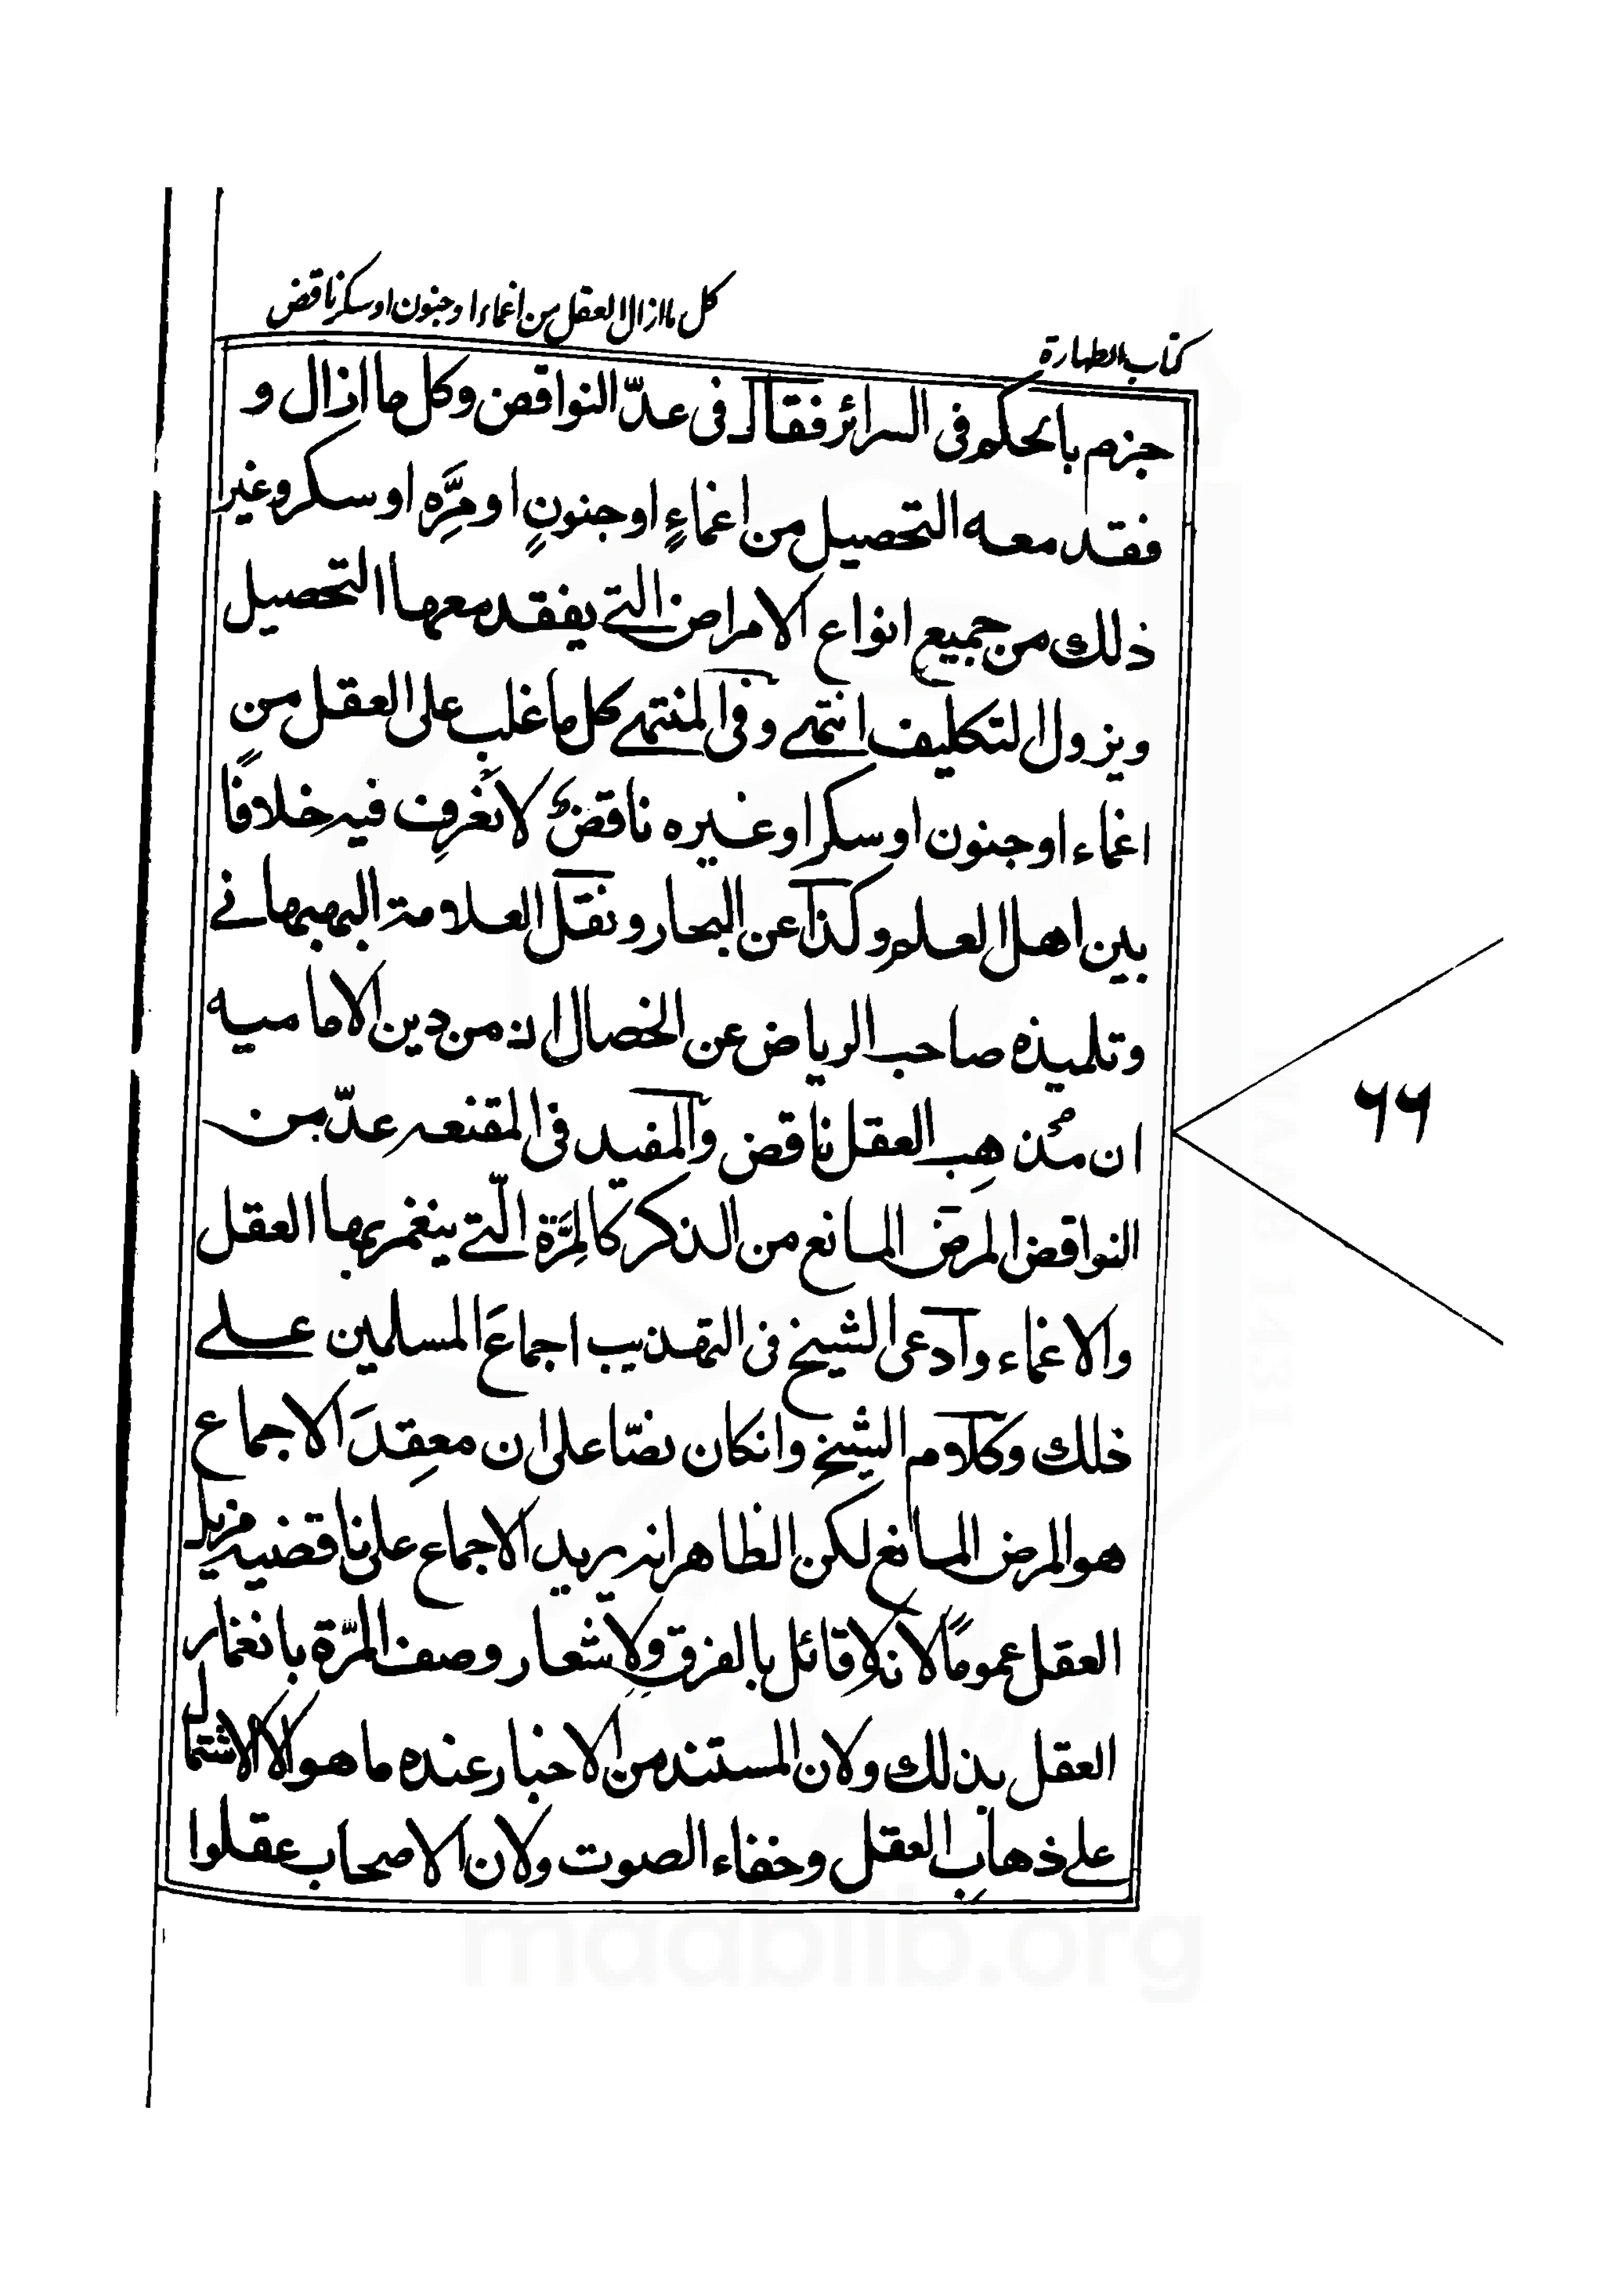 كتاب الطهارة
كل ما ازال العقل من اغماء او جنون او سكر ناقض
جزم بالحكم فى السرائر فقال فى عدّ النواقض وكل ما ازال و
فقد معه التحصيل من اغماءٍ او جنونٍ او مِرَّه او سكر وغير
ذلك من جميع انواع الامراض التے يفقد معها التحصيل
ويزول التكليف انتهے وفى المنتهے كل ما غلب على العقل من
اغماء او جنون او سكر او غيره ناقض لا نعرف فيه خلافًا
بين اهل العلم وكذا عن البحار ونقل العلامة البهبهانے
وتلميذه صاحب الرياض عن الخصال انه من دين الاماميه
ان مُذهِب العقل ناقض والمفيد فى المقنعه عدّ من
النواقض المرض المانع من الذكر كالمِرَّة الّتے ينغمر بها العقل
والاغماء وادعى الشيخ فى التهذيب اجماعَ المسلمين علے
ذلك وكلام الشيخ وانكان نصّا على ان معقِدَ الاجماع
هو المرض المانع لكن الظاهر انه يريد الاجماع على ناقضيه مزيل
العقل عمومًا لانه لا قائل بالفرق ولاشعار وصف المرّة بانغمار
العقل بذلك ولان المستند من الاخبار عنده ما هو كالاشتمال
علے ذهاب العقل وخفاء الصوت ولان الاصحاب عقلوا
۶۶
maablib.org